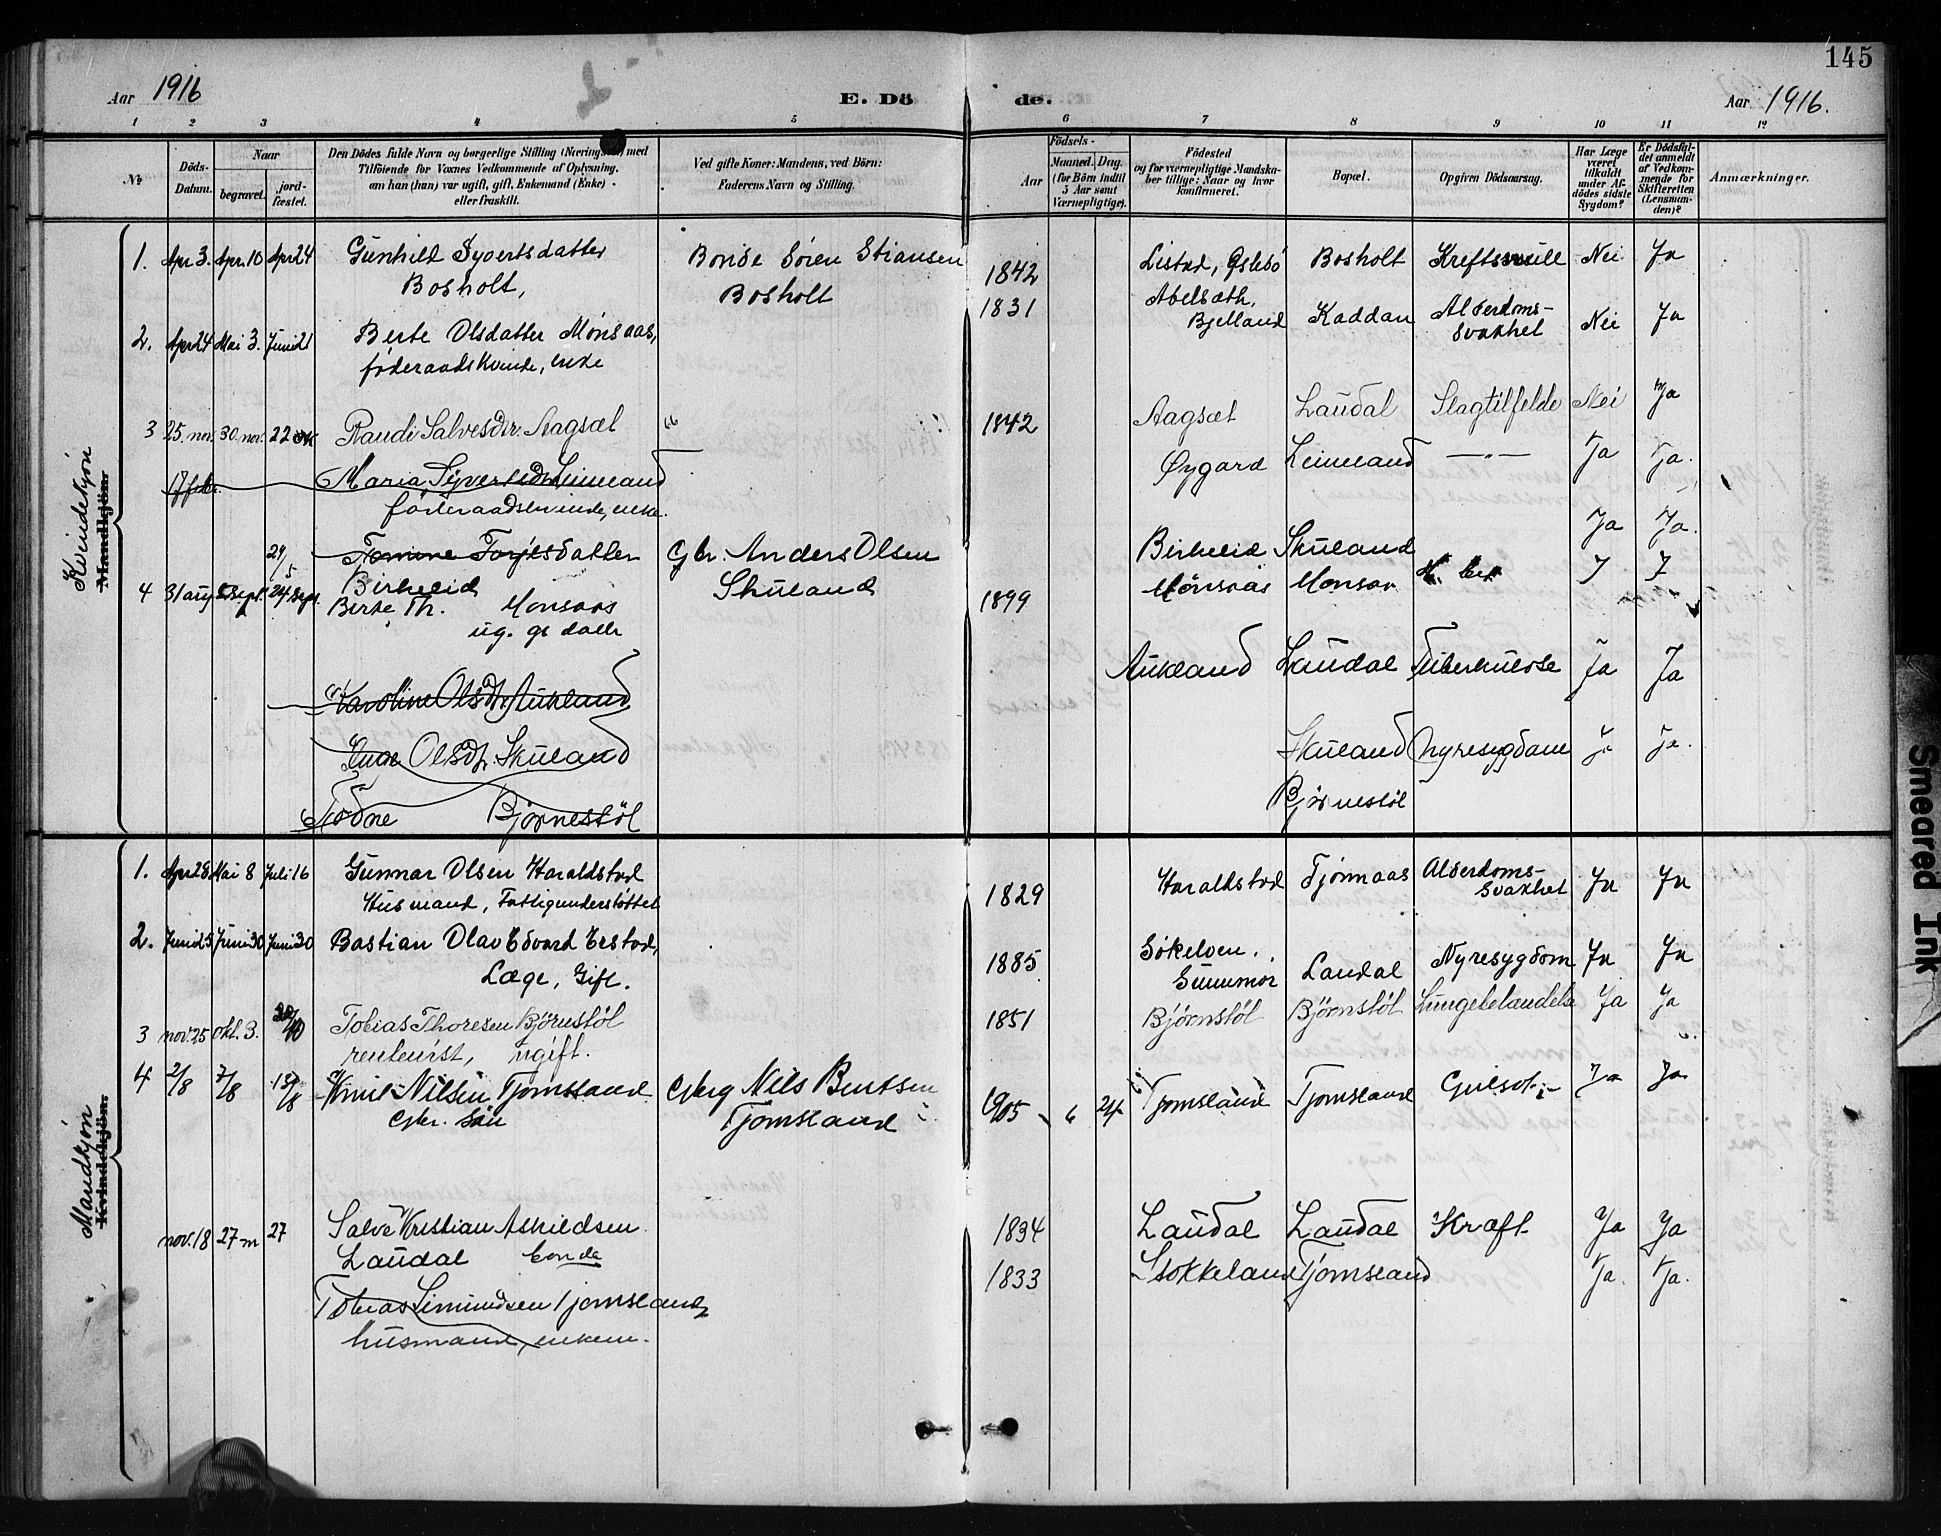 145
Aar 1916
E. Dö de.
Aar 1916.
1 2 3 4 5 6 7 8 9 10 11 12
№
Döds-
Datum.
Naar
begravet.
jord-
fæstet.
Den Dödes fulde Navn og borgerlige Stilling (Næringsvei) med
Tilföiende for Voxnes Vedkommende af Oplysning,
om han (hun) var ugift, gift, Enkemand (Enke)
eller fraskilt.
Ved gifte Koner: Mandens, ved Börn:
Faderens Navn og Stilling.
Födsels-
Aar
Maaned. Dag.
(for Börn indtil
5 Aar samt
Værnepligtige).
Födested
og for værnepligtige Mandska-
ber tillige: Naar og hvor
konfirmeret.
Bopæl.
Opgiven Dödsaarsag.
Har Læge
været
tilkaldt
under Af-
dödes sidste
Sygdom?
Er Dödsfal-
det anmeldt
af Vedkom-
mende for
Skifteretten
(Lensman-
den)?
Anmærkninger.
Kvindekjön
Mandkjön.
1. Apr 3. Apr. 10 Apr 24 Gunhild Syvertsdatter Bonde Sören Stiansen 1842 Listad, Oslebö Bosholt Nei Ja
Bosholt, Bosholt
2. Apr 24 Mai 3. Juni 21 Berte Olsdatter Mönsaas, 1831 Abelsæth, Bjelland Kaddan Alderdoms-svakhet Nei Ja
föderaadskvinde, enke
3 25. nov. 30. nov. 22 Randi Salvesdtr. Aagsæt 1842 Aagsæt Laudal Slagtilfelde Nei Ja
17 febr. Maria Syvertsdtr Leineland Øygard Leineland —"— Ja Ja.
föderaadskvinde, enke.
29/5 Tomine Torjesdatter Gbr. Anders Olsen Birkeleid Skuland Ja Ja.
Birkeleid Skuland
4 31 aug 24 Sept. Birte Th. Monsaas 1899 Mönsaas Monsaa J J
ug. gr datter
Karoline Olsdtr. Aukland Aukland Laudal Tuberkulose Ja Ja
Inge Olsdtr. Skuland Skuland nyresygdom Ja Ja.
Tödne Björnestöl Björnestöl
Mandkjön
Kvindekjön.
1. Apr 28 Mai 8 Juli 16 Gunnar Olsen Haraldstad 1829 Haraldstad Tjönnaas Alderdoms-svakhet Ja Ja
Husmand, Fattigunderstöttet
2. Juni 25 Juni 30 Juni 30 Bastian Olav Edvard Erstad, 1885 Sökelven. Sunnmör Laudal Nyresygdom Ja Ja
Læge, Gift.
3 nov. 25 Okt. 3. Tobias Thoresen Björnstöl 1851 Björnstöl Björnstöl Lungebetændelse Ja Ja
rentenist, ugift.
4 2/8 7/8 13/8 Knut Nilsen Tjomsland Gbrg Nils Bentsen 1905 6 24 Tjomsland Tjomsland Gulsot Ja Ja
Gbr. sön Tjomsland
nov. 18 27 27 Salve Kristian Askildsen 1834 Laudal Laudal Kræft Ja Ja
Laudal
1833 Stokkeland Tjomsland Ja. Ja.
Tobias Simundsen Tjomsland
husmand, enkem.
Smeared Ink